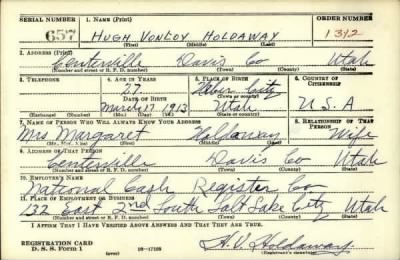 SERIAL NUMBER 1. NAME (Print) ORDER NUMBER
657 HUGH VONLOY HOLDAWAY 1312
(First) (Middle) (Last)
2. ADDRESS (Print)
Centerville Davis Co Utah
(Number and street or R. F. D. number) (Town) (County) (State)
3. TELEPHONE 4. AGE IN YEARS 5. PLACE OF BIRTH 6. COUNTRY OF CITIZENSHIP
27 Heber City
DATE OF BIRTH (Town or county)
March 17 1913 Utah U.S.A
(Exchange) (Number) (Mo.) (Day) (Yr.) (State or country)
7. NAME OF PERSON WHO WILL ALWAYS KNOW YOUR ADDRESS 8. RELATIONSHIP OF THAT PERSON
Mrs Margaret Holdaway Wife
(Mr., Mrs., Miss) (First) (Middle) (Last)
9. ADDRESS OF THAT PERSON
Centerville Davis Co Utah
(Number and street or R. F. D. number) (Town) (County) (State)
10. EMPLOYER'S NAME
National Cash Register Co
11. PLACE OF EMPLOYMENT OR BUSINESS
132 East 2nd South Salt Lake City Utah
(Number and street or R. F. D. number) (Town) (County) (State)
I AFFIRM THAT I HAVE VERIFIED ABOVE ANSWERS AND THAT THEY ARE TRUE.
REGISTRATION CARD
D. S. S. Form 1 (over) 16—17105 H. V. Holdaway
(Registrant's signature)